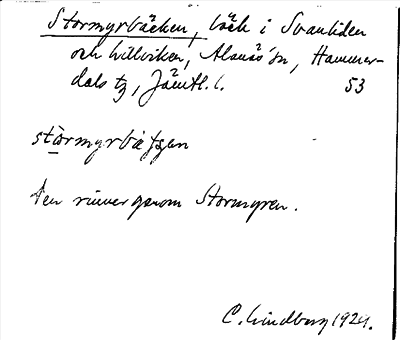 Stormyrbäcken, bäck i Svanliden
och Lillviken, Alanäs sn, Hammer-
dals tg, Jämtl. l. 53
Den rinner genom Stormyren.
C. Lindberg 1929.